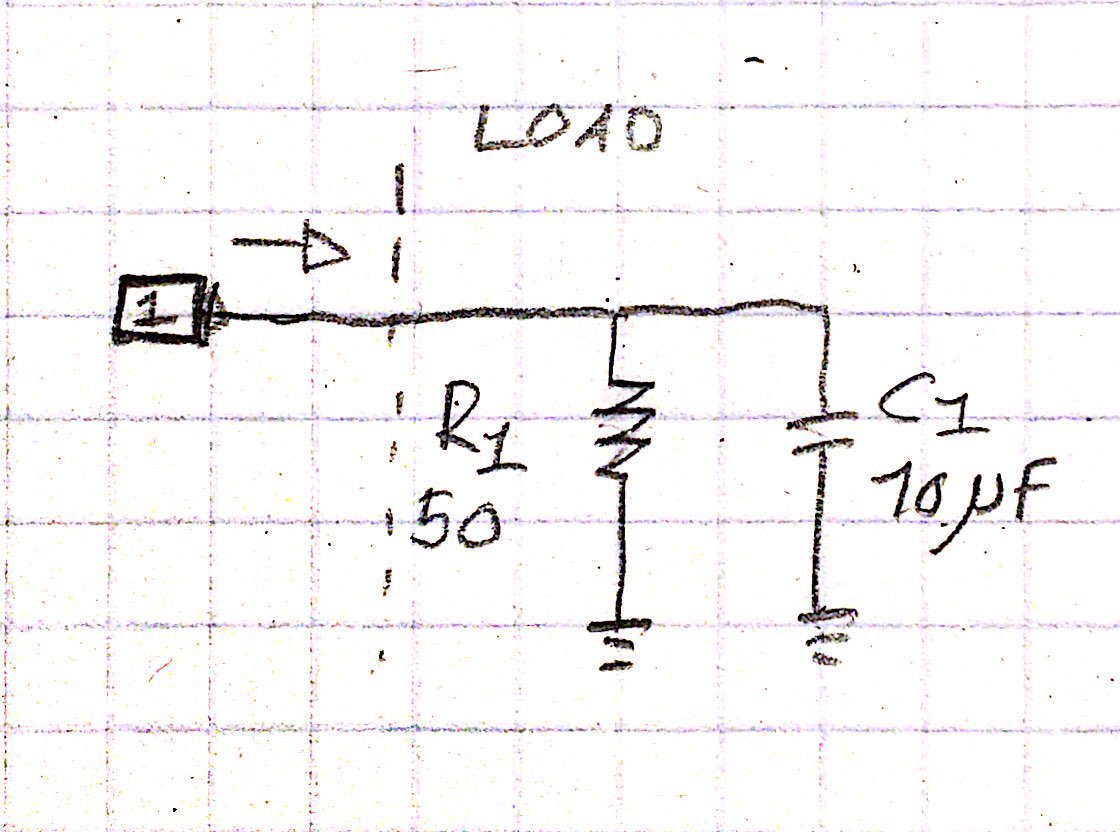 LOAD
1
R1
50
C1
10µF